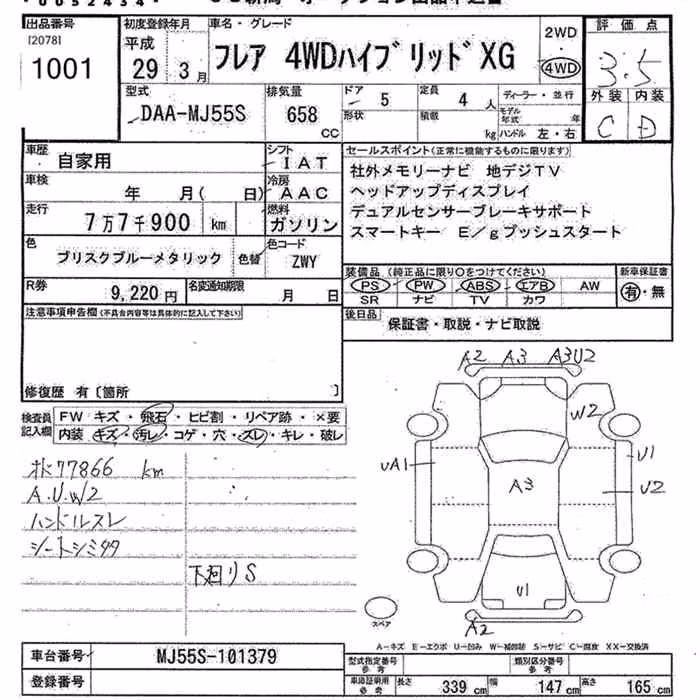 出品番号
[2078]
1001
初度登録年月
平成
29年 3月
車名・グレード
フレア 4WDハイブリッドXG
2WD
4WD
評価点
3.5
外装 内装
C D
型式
DAA-MJ55S
排気量
658 CC
ドア 5
形状
定員 4 人
積載 kg
ディーラー・並行
モデル年式 年
ハンドル 左・右
車歴
自家用
シフト
IAT
車検
年 月( 日)
冷房
AAC
走行
7万7千900 km
燃料
ガソリン
色
ブリスクブルーメタリック
色替
色コード
ZWY
R券
9,220円
名変通知期限
月 日
セールスポイント(正常に機能するものに限ります)
社外メモリーナビ 地デジTV
ヘッドアップディスプレイ
デュアルセンサーブレーキサポート
スマートキー E/gプッシュスタート
装備品(純正品に限り○をつけてください)
PS PW ABS エアB AW
SR ナビ TV カワ
新車保証書
有・無
後日品
保証書・取説・ナビ取説
注意事項申告欄(不具合内容等は具体的に記入して下さい)
修復歴 有〔箇所 〕
検査員記入欄
FW キズ・飛石・ヒビ割・リペア跡・×要
内装 キズ・汚レ・コゲ・穴・スレ・キレ・破レ
77866 km
A.U.W2
ハンドルスレ
シートシミ
下廻りS
A2 A3 A3U2
W2
UA1
U1
A3
U2
U1
A2
スペア
A-キズ E-エクボ U-凹み W-補修跡 S-サビ C-腐食 XX-交換済
車台番号
MJ55S-101379
登録番号
型式指定番号 参考
類別区分番号 参考
車庫証明用 参考
長さ 339 cm
幅 147 cm
高さ 165 cm